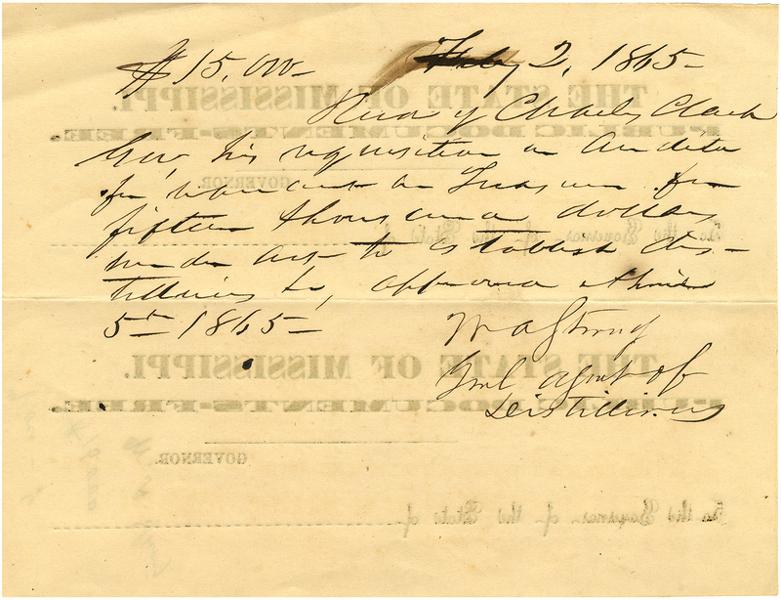 $15,000- Feby 2, 1865-
Recd of Charles Clark
Gov, his requisition on Auditor
for warrant on Treasurer for
fifteen thousand dollars
under Act to establish dis-
tilleries &c, approved
5th 1865-
W A Strong
Genl Agent of
Distilleries
THE STATE OF MISSISSIPPI.
PUBLIC DOCUMENTS-FREE.
GOVERNOR.
To the Governor of the State of
THE STATE OF MISSISSIPPI.
PUBLIC DOCUMENTS-FREE.
GOVERNOR.
To the Governor of the State of